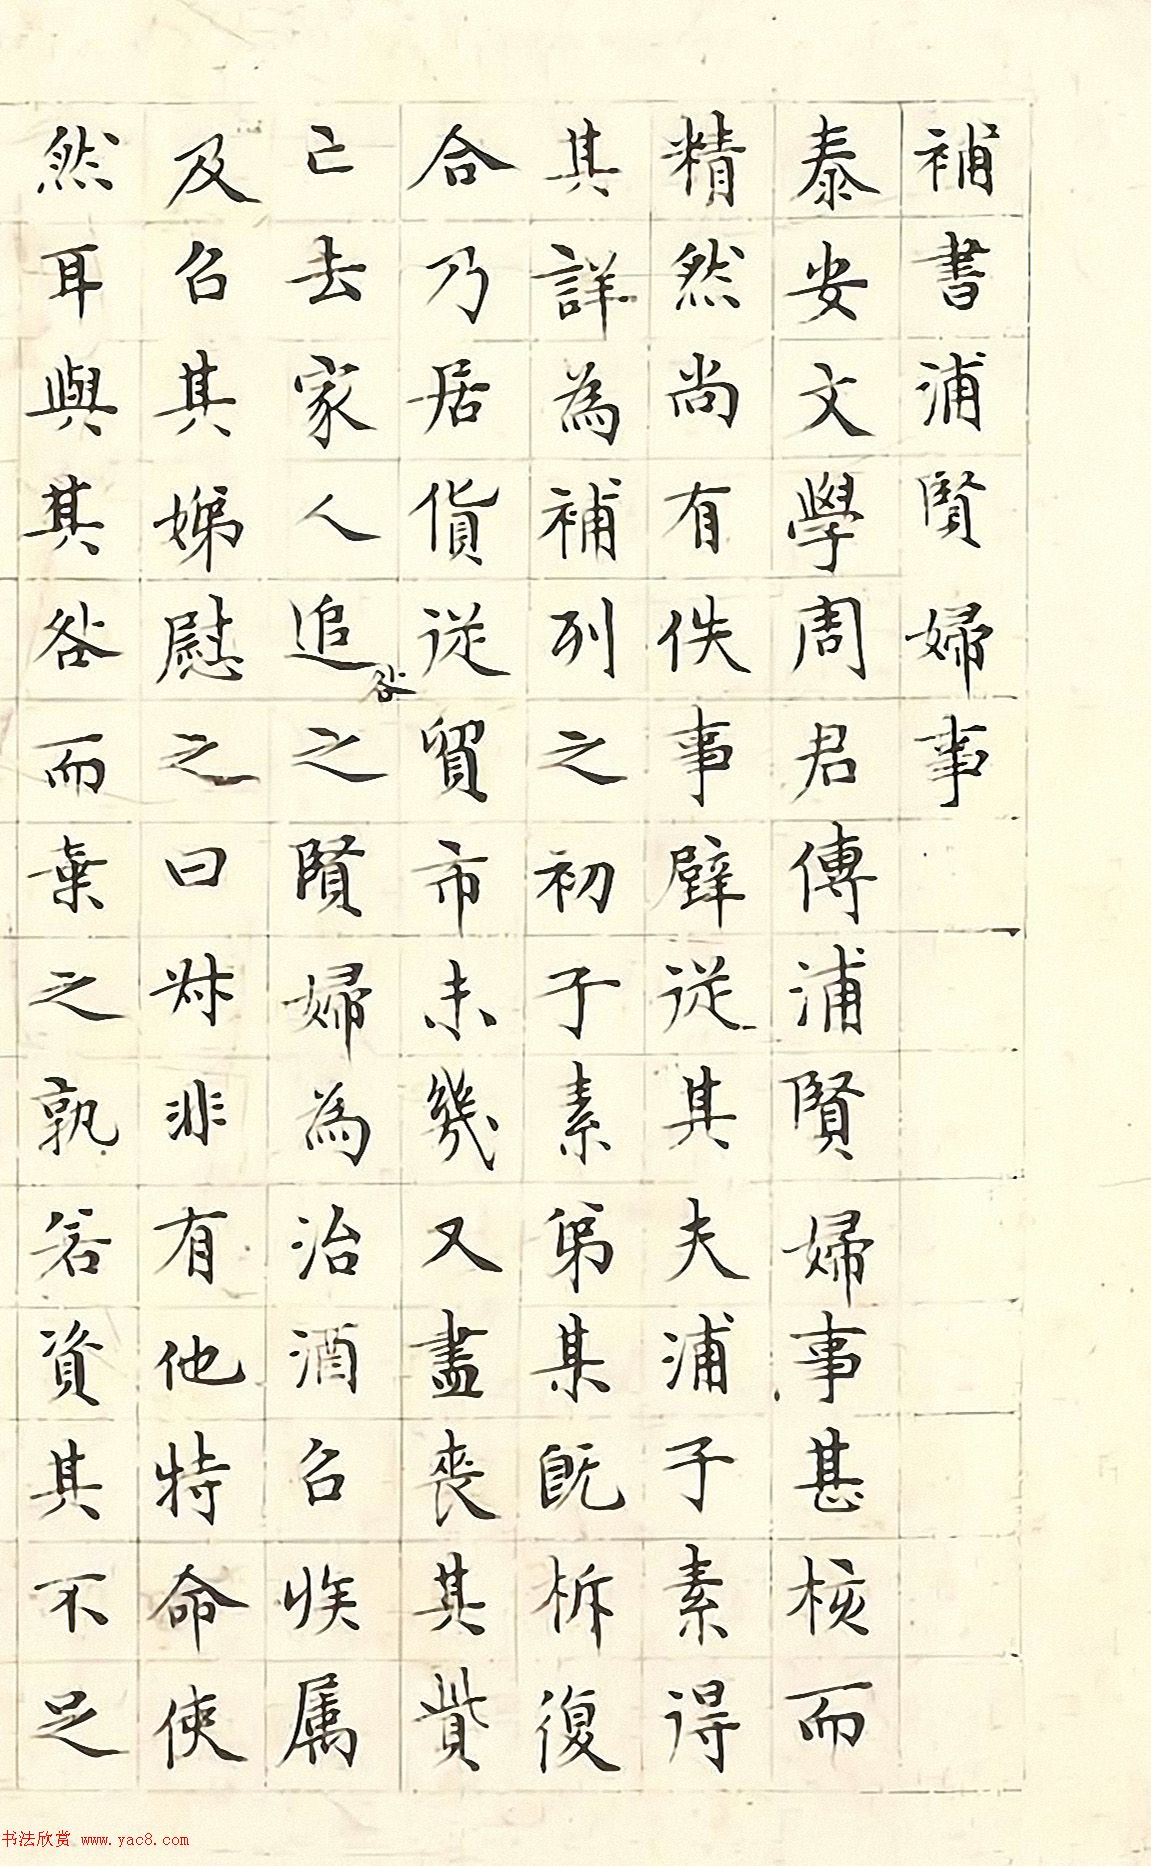 補書浦賢婦事
泰安文學周君傳浦賢婦事甚核而
精然尚有佚事群從其夫浦子素得
其詳為補列之初子素弟某既柝復
合乃居貨從貿市未幾又盡喪其貲
亡去家人追咎之賢婦為治酒召疾屬
及召其娣慰之曰叔非有他特命使
然耳與其咎而棄之孰若資其不足
书法欣赏 www.yac8.com